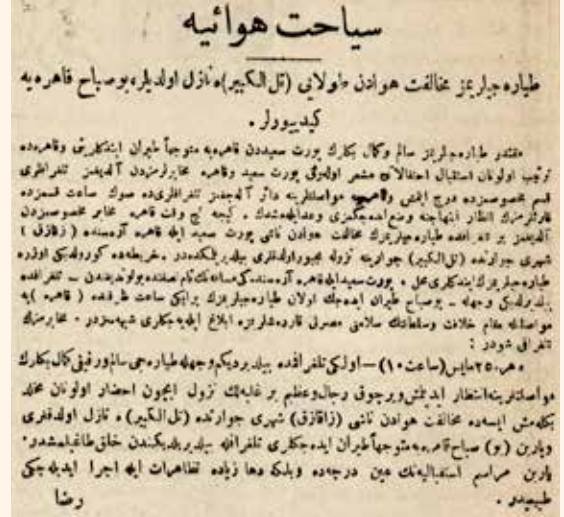 سیاحت هوائیه
طیاره‌جیلریمز مخالفت هوادن طولایی (تل الکبیر)ه نازل اولدیلر، بو صباح قاهره‌یه
کیدیورلر .
مقتدر طیاره‌جیلریمز سالم وکمال بکلرك پورت سعیددن قاهره‌یه متوجهاً طیران ایتدکلرینی وقاهره‌ده
ترتیب اولونان استقبال احتفالاتی مشعر اولدیغی پورت سعید وقاهره مخابرلرمزدن آلدیغمز تلغرافلری
قسم مخصوصمزده درج ایتمش مواصلتلرینه دائر آله‌جغمز تلغرافلری‌ده صوك ساعت قسمزده
قارئلرمزك انظار ابتهاجنه وضع ایده‌جکمزی وعد ایله‌مشدك . کیجه کچ وقت قاهره مخابر مخصوصمزدن
آلدیغمز بر تلغرافده طیاره‌جیلریمزك مخالفت هوادن ناشی پورت سعید ایله قاهره آره‌سنده (زقازق)
شهری جوارنده (تل الکبیر) جوارینه نزوله مجبور اولدقلری بیلدیریلمکده‌در . خریطه‌ده کورولدیکی اوزره
طیاره‌جیلریمزك ایندکلری محل . پورت سعید ایله قاهره آره‌سنده‌کی مسافه‌نك تام نصفنده بولوندیغندن – تلغرافده
بیلدیرلدیکی وجهله – بو صباح طیران ایده‌جك اولان طیاره‌جیلریمز برایکی ساعت ظرفنده (قاهره)یه
مواصلتله مقام خلافت وسلطنتك سلامنی مصرلی قارداشلریمزه ابلاغ ایله‌یه‌جکلری شبهه‌سزدر . مخابرمزك
تلغرافی شودر :
۲۵ مایس (ساعت ۱۰) – اولکی تلغرافده بیلدیردیکم وجهله طیاره‌جی سالم ورفیقی کمال بکلرك
مواصلتلرینه انتظار ایدیلمش وبرچوق رجال وعظیم بر غلبه‌لك نزول ایچون احضار اولونان محله
کله‌مش ایسه‌ده مخالفت هوادن ناشی (زاقازق) شهری جوارنده (تل الکبیر)ه نازل اولدقلری
ویارین (بو) صباح قاهره‌یه متوجهاً طیران ایده‌جکلری تلغرافله بیلدیریلدیکندن خلق طاغیلمشدر.
یارین مراسم استقبالیه‌نك عین درجه‌ده وبلکه دها زیاده تظاهرات ایله اجرا ایدیله‌جکی
طبیعیدر .
رضا